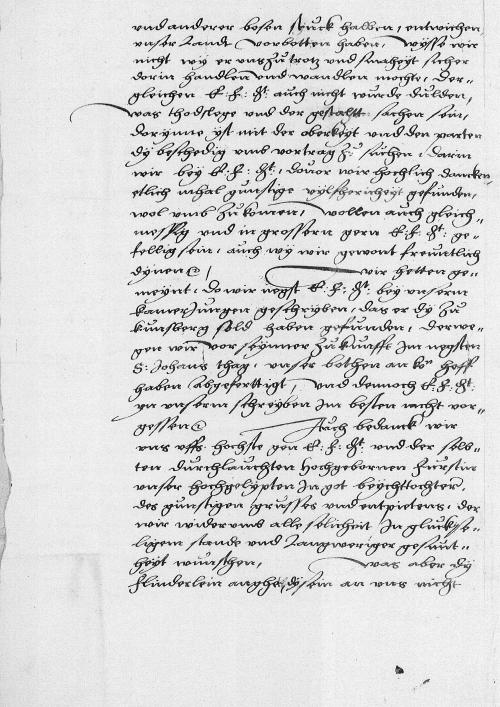 vnd anderer bosen stuck halben, entwichen,
vnser Lande vorbotten haben, wysse wir
nicht wy er vns zu trotz vnd smaheyt sicher
dorin handlen vnd wandlen mochte, Der-
gleichen E. f. G. auch nicht wurde dulden,
was thodslege vnd der gestaltt sachen sein,
dorynne yst mit der oberkeyt vnd den parten
dy beschedig vmb vortrag zu suchen, darin
wir bey E: f: G:, douor wir hochlich dancken,
etlich mhal gunstige wylfherickeyt gefunden,
wol vmb zu komen, wollen auch gleich-
messig vnd in grossern gern E: f: G: ge-
fellig sein, auch wy wir gewont freuntlich
dynen @ / wir hetten ge-
meynt, do wir negst E: f: G: bey vnserm
kamer Jungen geschryben, das er dy zu
kunsberg sold haben gefunden, derwe-
gen wir vor seynner zukunfft Im negsten
S: Johans thag, vnser bothen an ko hoff
haben abgeferttigt, vnd dennoch E: f: G:
yn vnserm schreyben Im besten nicht vor-
gessen @ Auch bedanck wir
vns vffs hochste gen E: f: G: vnd der selb-
ten durchlauchten hochgebornen furstin
vnser hochgelypten In got beychttochter,
des gunstigen grusses vnd entpietens, der
wir widervmb alle selicheit In gluckse-
ligem stande vnd Langweriger gesunt-
heyt wunschen, was aber dy
flinderlein anghet, dy sein an vns nicht